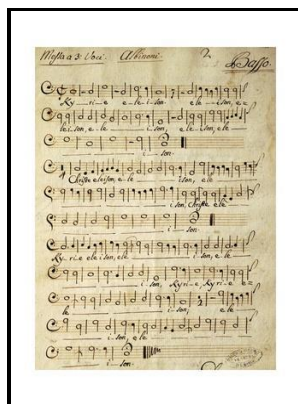 Messa a 3: Voci Albinoni Basso
Ky—ri—e e—le—i—son, e—le—i—son, e—
le i son, e—le i—son, e le i son, e le
i—son.
Christe eleison, e—le i—son, e le
i—son, Christe ele
i—son.
Ky—ri—e ele i son, ele i—son, e—le
i—son, Kyrie, Kyrie e=
le i—son, e—le
i son, e le
i—son.